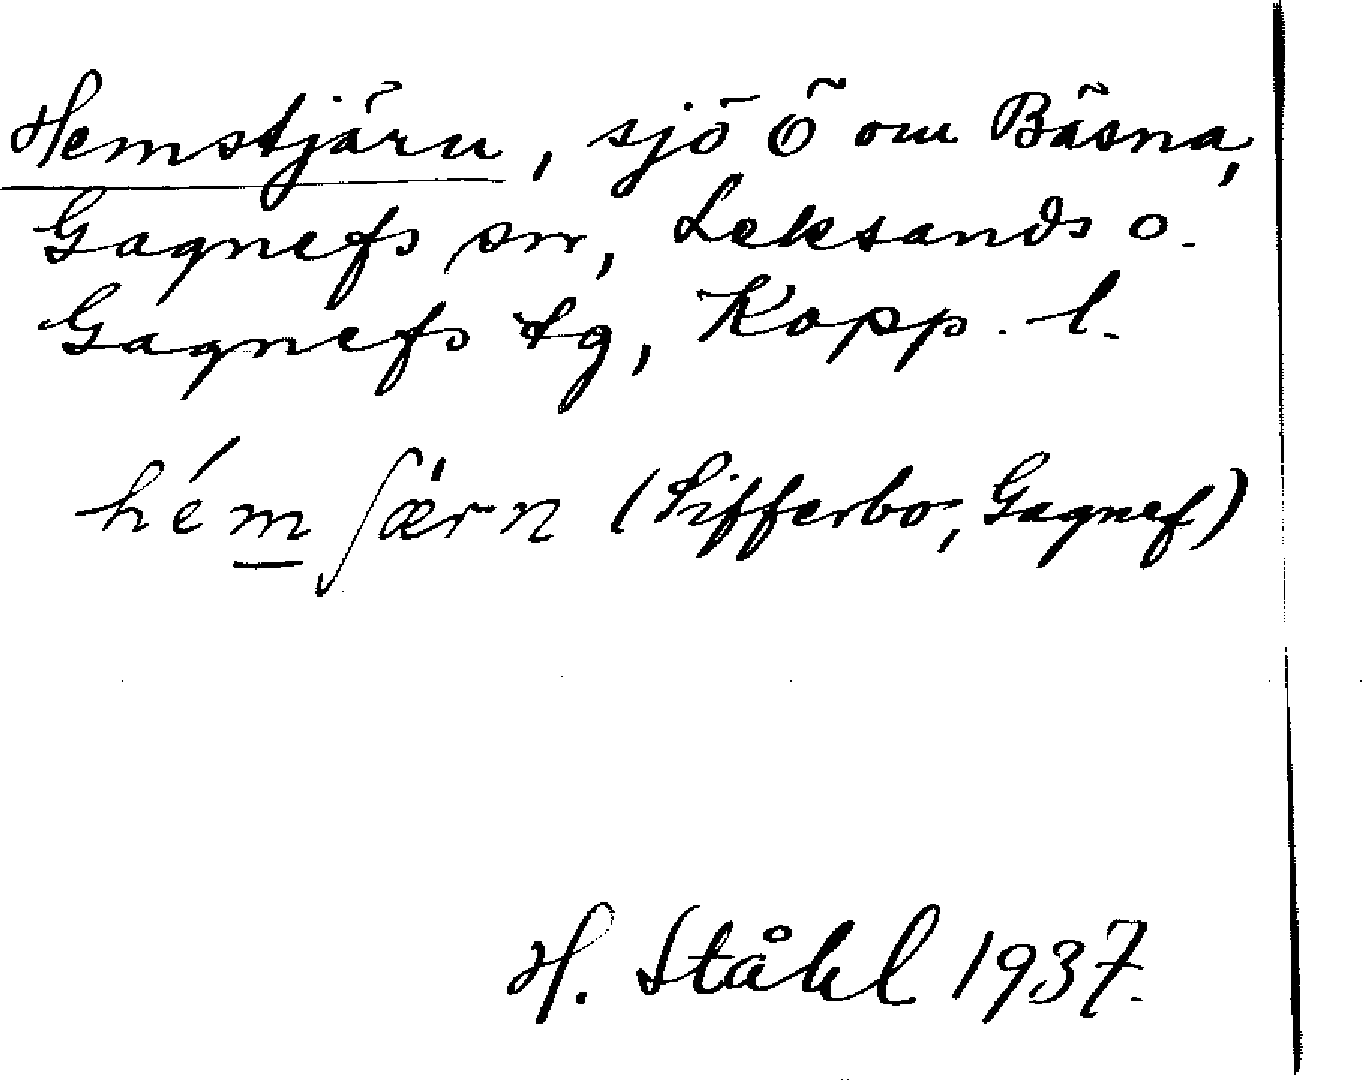 Hemstjärn, sjö Ö om Bäsna,
Gagnefs sn, Leksands o.
Gagnefs tg, Kopp. l.
hém̲ʃærn (Sifferbo, Gagnef)
H. Ståhl 1937.